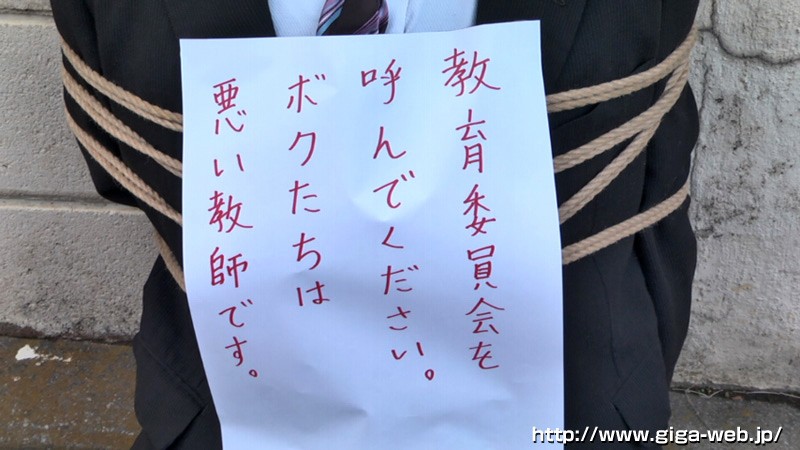 教育委員会を
呼んでください。
ボクたちは
悪い教師です。
http://www.giga-web.jp/